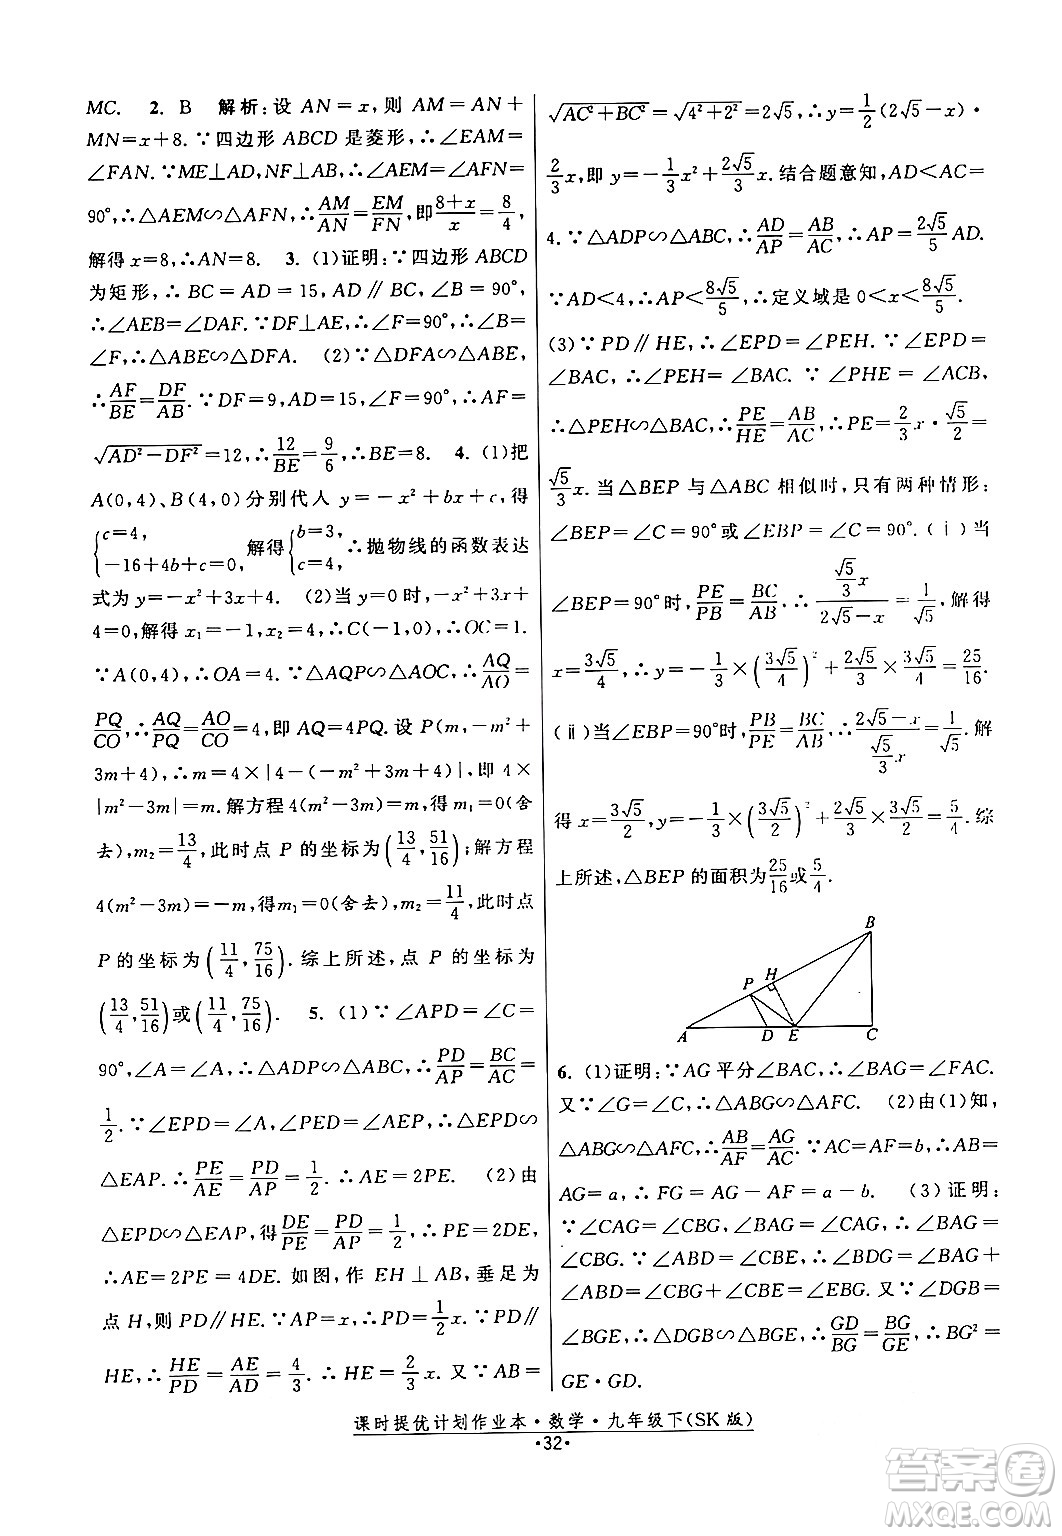 MC. 2. B 解析:设 AN=x,则 AM=AN+
MN=x+8. ∵四边形 ABCD 是菱形,∴∠EAM=
∠FAN. ∵ME⊥AD, NF⊥AB, ∴∠AEM=∠AFN=
90°,∴△AEM∽△AFN,∴AM/AN=EM/FN,即(8+x)/x=8/4,
解得 x=8,∴AN=8. 3. (1)证明:∵四边形 ABCD
为矩形,∴BC=AD=15,AD∥BC,∠B=90°,
∴∠AEB=∠DAF. ∵DF⊥AE,∴∠F=90°,∴∠B=
∠F,∴△ABE∽△DFA. (2)∵△DFA∽△ABE,
∴AF/BE=DF/AB. ∵DF=9,AD=15,∠F=90°,∴AF=
√(AD²-DF²)=12,∴12/BE=9/6,∴BE=8. 4. (1)把
A(0,4)、B(4,0)分别代人 y=-x²+bx+c,得
{c=4, -16+4b+c=0, 解得{b=3, c=4, ∴抛物线的函数表达
式为 y=-x²+3x+4. (2)当 y=0 时,-x²+3x+
4=0,解得 x₁=-1,x₂=4,∴C(-1,0),∴OC=1.
∵A(0,4),∴OA=4. ∵△AQP∽△AOC,∴AQ/AO=
PQ/CO,∴AQ/PQ=AO/CO=4,即 AQ=4PQ. 设 P(m,-m²+
3m+4),∴m=4×|4-(-m²+3m+4)|,即 4×
|m²-3m|=m. 解方程 4(m²-3m)=m,得 m₁=0(舍
去),m₂=13/4,此时点 P 的坐标为(13/4,51/16);解方程
4(m²-3m)=-m,得m₁=0(舍去),m₂=11/4,此时点
P 的坐标为(11/4,75/16). 综上所述,点 P 的坐标为
(13/4,51/16)或(11/4,75/16). 5. (1)∵∠APD=∠C=
90°,∠A=∠A,∴△ADP∽△ABC,∴PD/AP=BC/AC=
1/2. ∵∠EPD=∠A,∠PED=∠AEP,∴△EPD∽
△EAP. ∴PE/AE=PD/AP=1/2. ∴AE=2PE. (2)由
△EPD∽△EAP,得DE/PE=PD/AP=1/2,∴PE=2DE,
∴AE=2PE=4DE. 如图,作 EH⊥AB,垂足为
点 H,则 PD∥HE. ∵AP=x,∴PD=1/2x. ∵PD∥
HE,∴HE/PD=AE/AD=4/3,∴HE=2/3x. 又∵AB=
√(AC²+BC²)=√(4²+2²)=2√5,∴y=1/2(2√5-x)·
2/3x,即 y=-1/3x²+2√5/3x. 结合题意知,AD<AC=
4. ∵△ADP∽△ABC,∴AD/AP=AB/AC,∴AP=2√5/5AD.
∵AD<4,∴AP<8√5/5,∴定义域是 0<x<8√5/5.
(3)∵PD∥HE,∴∠EPD=∠PEH. ∵∠EPD=
∠BAC,∴∠PEH=∠BAC. ∵∠PHE=∠ACB,
∴△PEH∽△BAC,∴PE/HE=AB/AC,∴PE=2/3x·√5/2=
√5/3x. 当△BEP 与△ABC 相似时,只有两种情形:
∠BEP=∠C=90°或∠EBP=∠C=90°. (ⅰ)当
∠BEP=90°时,PE/PB=BC/AB. ∴(√5/3x)/(2√5-x)=1/√5,解得
x=3√5/4,∴y=-1/3×(3√5/4)²+2√5/3×3√5/4=25/16.
(ⅱ)当∠EBP=90°时,PB/PE=BC/AB,∴(2√5-x)/(√5/3x)=1/√5,解
得 x=3√5/2,∴y=-1/3×(3√5/2)²+2√5/3×3√5/2=5/4. 综
上所述,△BEP 的面积为25/16或5/4.
B
P H
A D E C
6. (1)证明:∵AG 平分∠BAC,∴∠BAG=∠FAC.
又∵∠G=∠C,∴△ABG∽△AFC. (2)由(1)知,
△ABG∽△AFC,∴AB/AF=AG/AC. ∵AC=AF=b,AB=
AG=a,∴FG=AG-AF=a-b. (3)证明:
∵∠CAG=∠CBG,∠BAG=∠CAG,∴∠BAG=
∠CBG. ∵∠ABD=∠CBE,∴∠BAG+
∠ABD=∠CBG+∠CBE=∠EBG. 又∵∠DGB=
∠BGE,∴△BDG∽△EBG,∴GD/BG=BG/GE,∴BG²=
GE·GD.
课时提优计划作业本·数学·九年级下(SK版)
·32·
答案圈
MXQE.COM